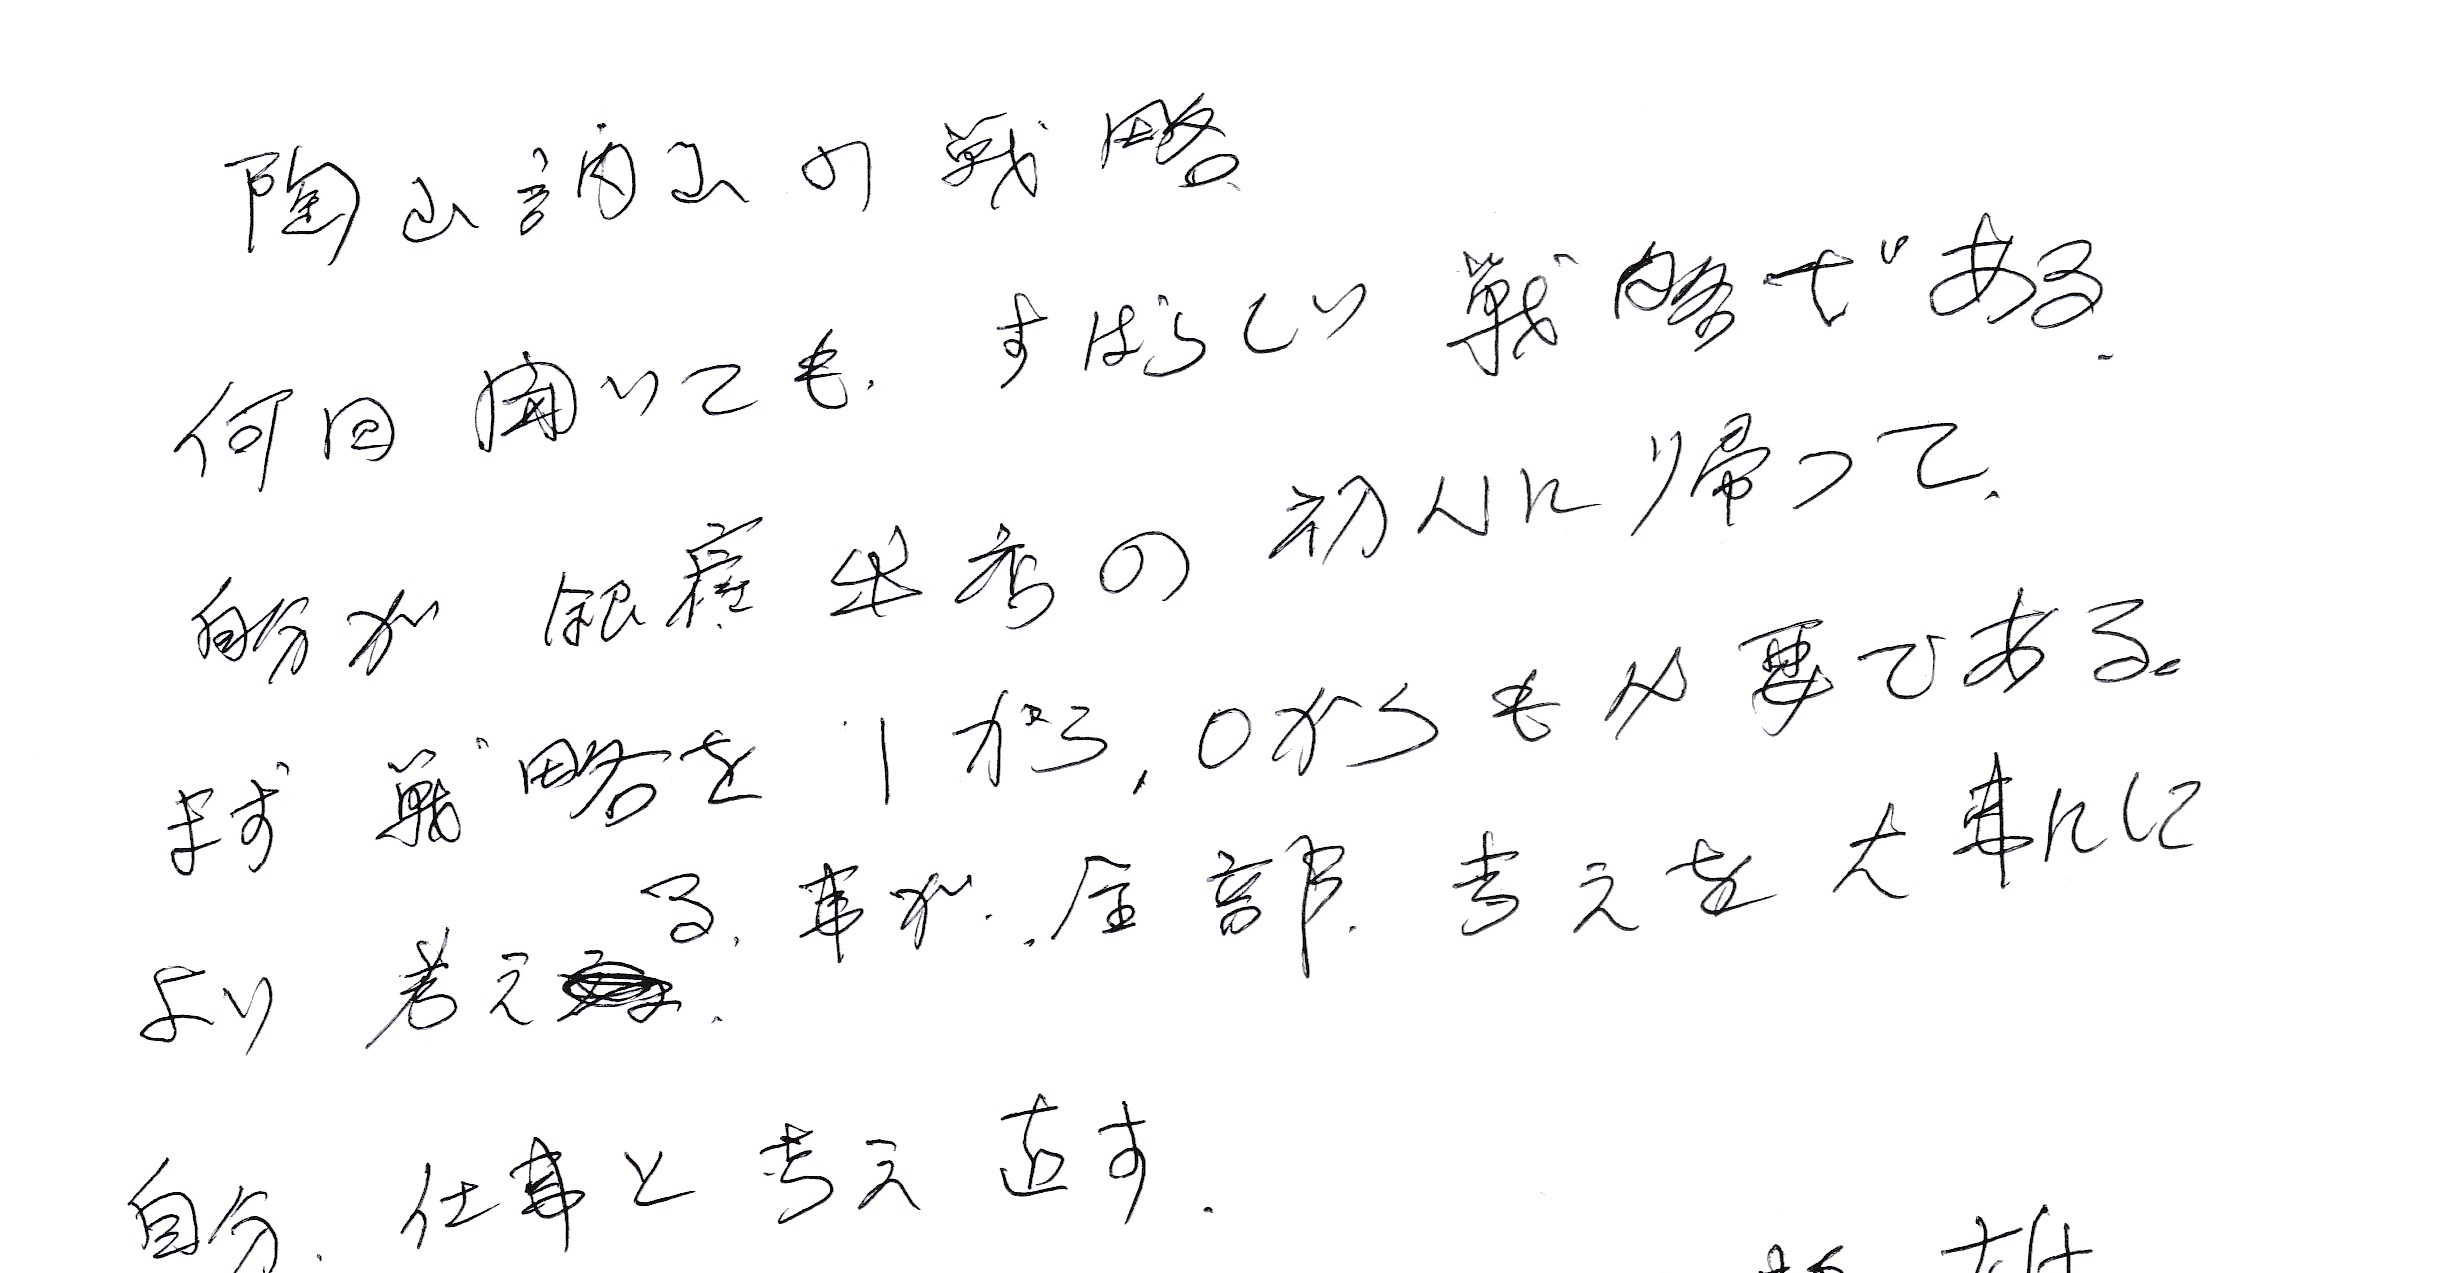 陶山訥山の戦略
何回聞いても.すばらしい戦略である.
自分が銀座出店の初心に帰って.
まず戦略を1から,0からも必要である。
より考える.事が.全部.考えを大事にし
自分.仕事と考え直す.